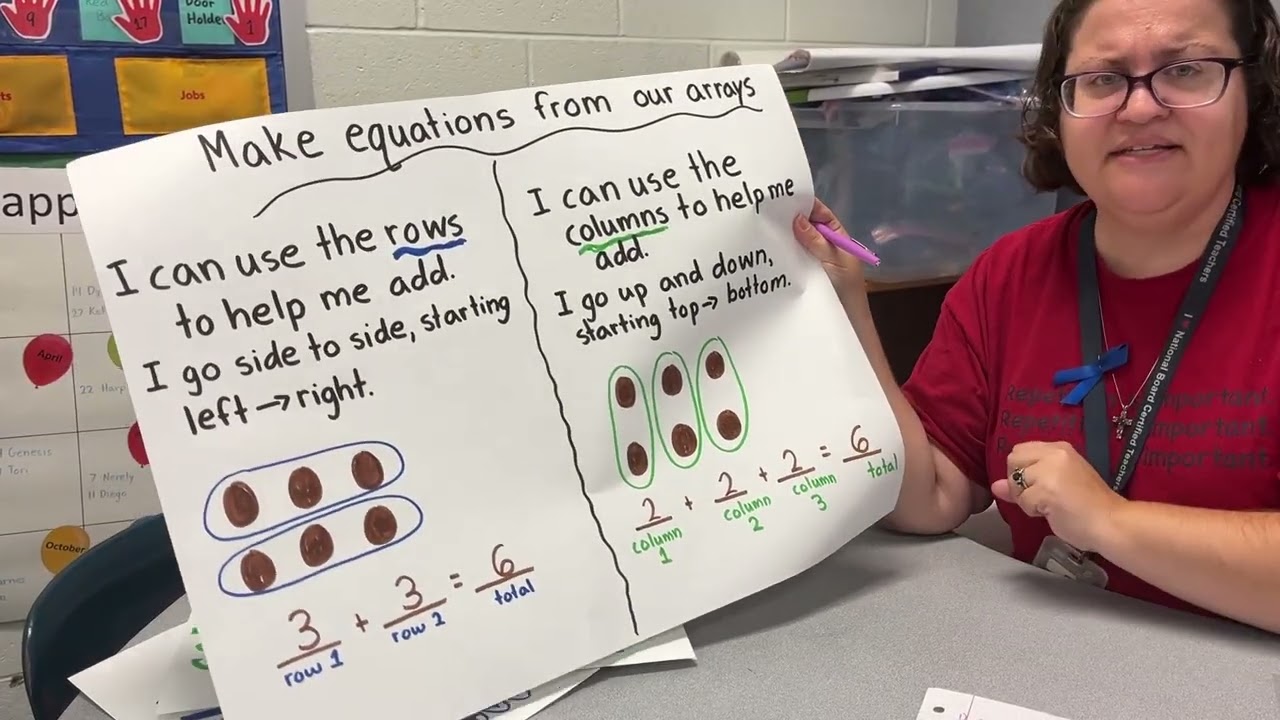 9
17
Door
Holde
1
ts
Jobs
app
April
22 Harp
Genesis
Tori
7 Nerely
11 Diego
October
Make equations from our arrays
I can use the rows
to help me add.
I go side to side, starting
left → right.
3 + 3 = 6
row 1 row 2 total
I can use the
columns to help me
add.
I go up and down,
starting top → bottom.
2 + 2 + 2 = 6
column 1 column 2 column 3 total
I ♥ National Board Certified Teachers
important.
important.
important.